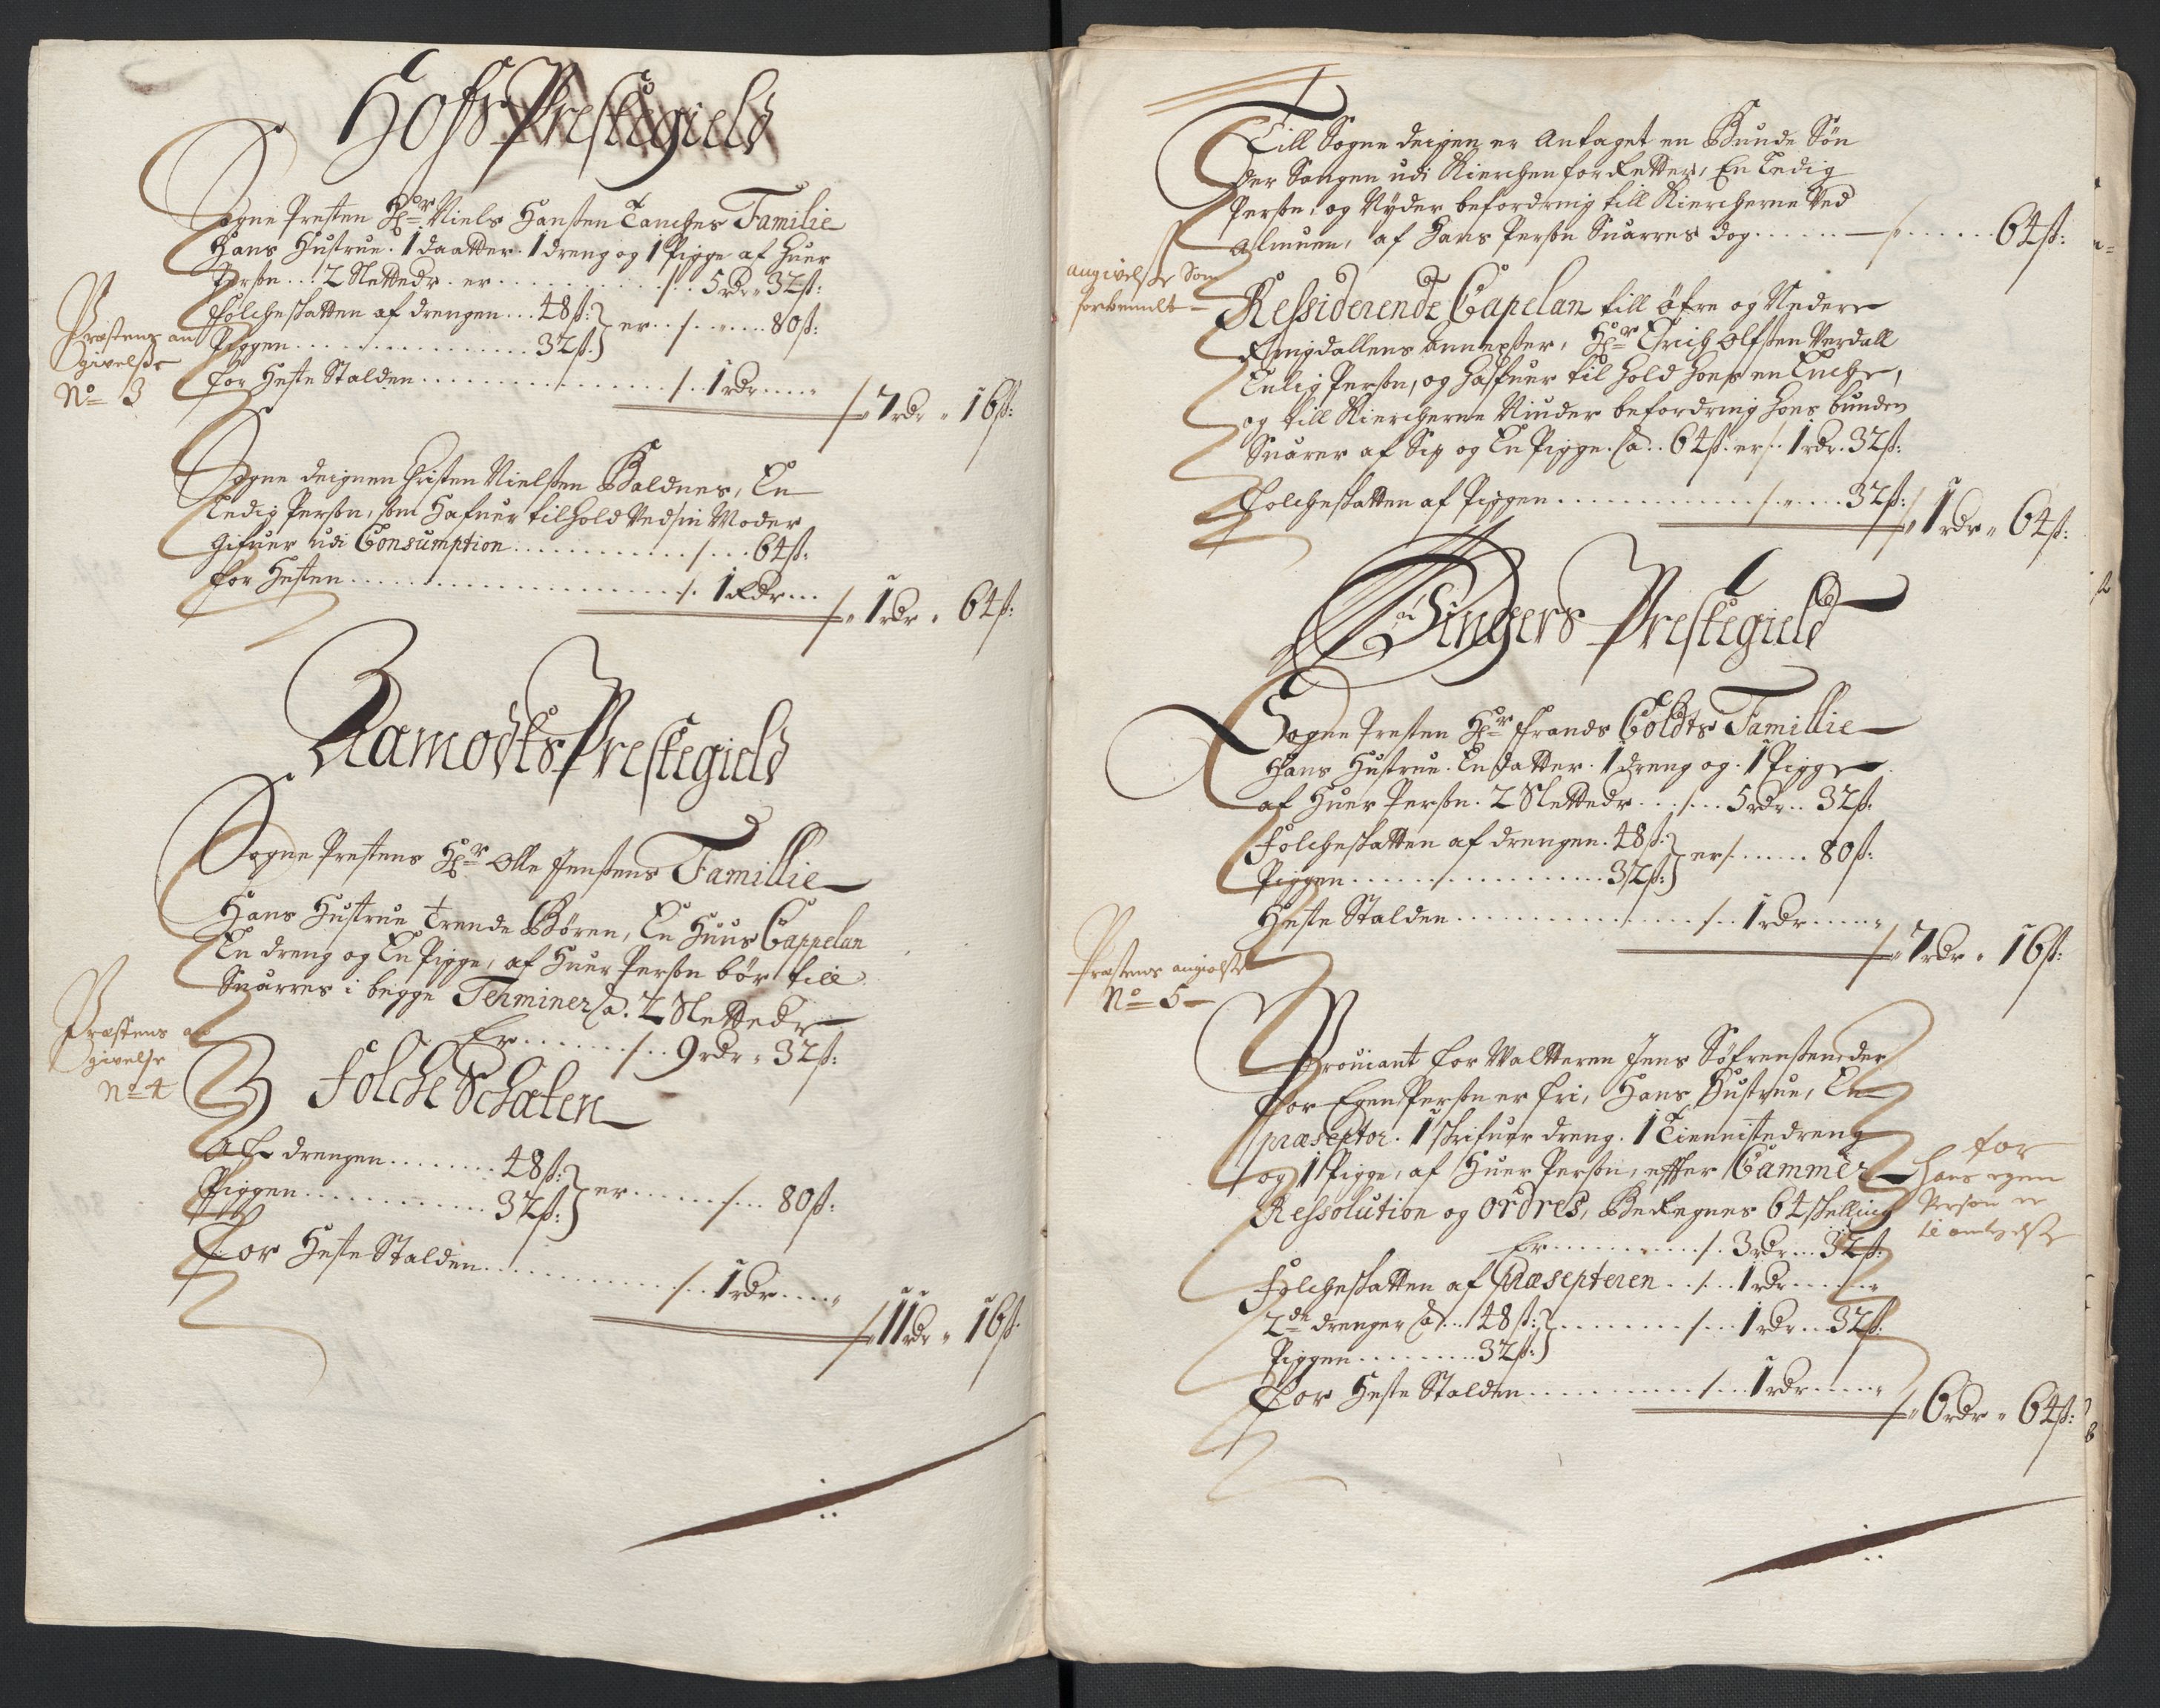 Hofs Prestegield
Sogne Presten Hr: Niels Hanßen Tanches Familie
Hans Hustrue. 1 daatter. 1 dreng og 1 Pigge af huer
Person... 2 Slettedr. er ........... /.. 5 rdr " 32 ß:
Præstens an
givelße
No 3
Folcheskatten af drengen ... 48 ß:
Piggen ................ 32 ß: } er .. / ....... 80 ß:
for Heste Stalden ................ /.. 1 rdr .... "
/ 7 rdr " 16 ß:
Sogne deignen Christen Nielßen Baldnes, En
Ledig Person, som Hafuer tilhold ved sin Moder
Gifuer udi Consumption ............. / .... 64 ß:
for Hesten ........................ /. 1 Rdr ...
/ " 1 rdr " 64 ß:
Aamodts Prestegield
Sogne Prestens Hr: Olle Jenßens Famillie
Hans Hustrue Trende Børen, En Huus Cappelan
En dreng og En Pigge, af Huer Person bør till
Suarres i begge Terminer a. 2 Slettedr
Er ........ /.. 9 rdr " 32 ß:
Præstens an
givelse
No 4
Folche Schaten
Af drengen ........ 48 ß:
Piggen ............. 32 ß: } er ........ / ... 80 ß:
For Heste Stalden ............... /.. 1 rdr .... "
/ " 11 rdr " 16 ß:
Till Sogne deignen er Antaget en Bunde Søn
der Sangen udi Kierchen forRetter, En Ledig
Person, og Nyder befordring till Kiercherne ved
Almuen, af Hans Person Suarres dog ........ / ...... 64 ß:
angivelße Som
forbemelt
Ressiderende Capelan till øfre og Nedere
Ringdallens annexter, Hr: Erich Olfßen Verdall
Enlig Person, og hafuer til hold hoes en Enche,
og till Kiercherne Niuder befordring hoes bunden
Suarer af Sig og En Pigge. a .. 64 ß. er /. 1 rdr. 32 ß:
Folcheskatten af Piggen ............... / . " ..... 32 ß:
/ " 1 rdr " 64 ß:
Vingers Prestegield
Sogne Presten Hr: Frands Coldts Famillie
Hans Hustrue. En datter. 1 dreng og. 1 Pigge
af Huer Person. 2 Slettedr ... / ... 5 rdr .. 32 ß:
Folcheskatten af drengen. 48 ß:
Piggen .................. 32 ß: } er / ....... 80 ß:
Heste Stalden ................ /.. 1 rdr ..... "
/ " 7 rdr " 16 ß:
Præstens angivelße
No 5
Proviant Forvaltteren Jens Søfrenßen, der
for Egen Person er fri, Hans Hustrue, En
præseptor. 1 skrifuer dreng. 1 Tienniste dreng
og 1 Pigge, af Huer Person, effter Cammer
Ressolution og ordres, BeRegnes 64 skelling
for
hans egen
Person er
Er ............ /. 3 rdr ... 32 ß:
Folcheskatten af Præsepteren .. / ... 1 rdr ...... "
2de drenger a ... 48 ß: } ......... / ... 1 rdr ... 32 ß:
Piggen ......... 32 ß:
For Heste Stalden ............. / ... 1 rdr ...... "
/ " 6 rdr " 64 ß: